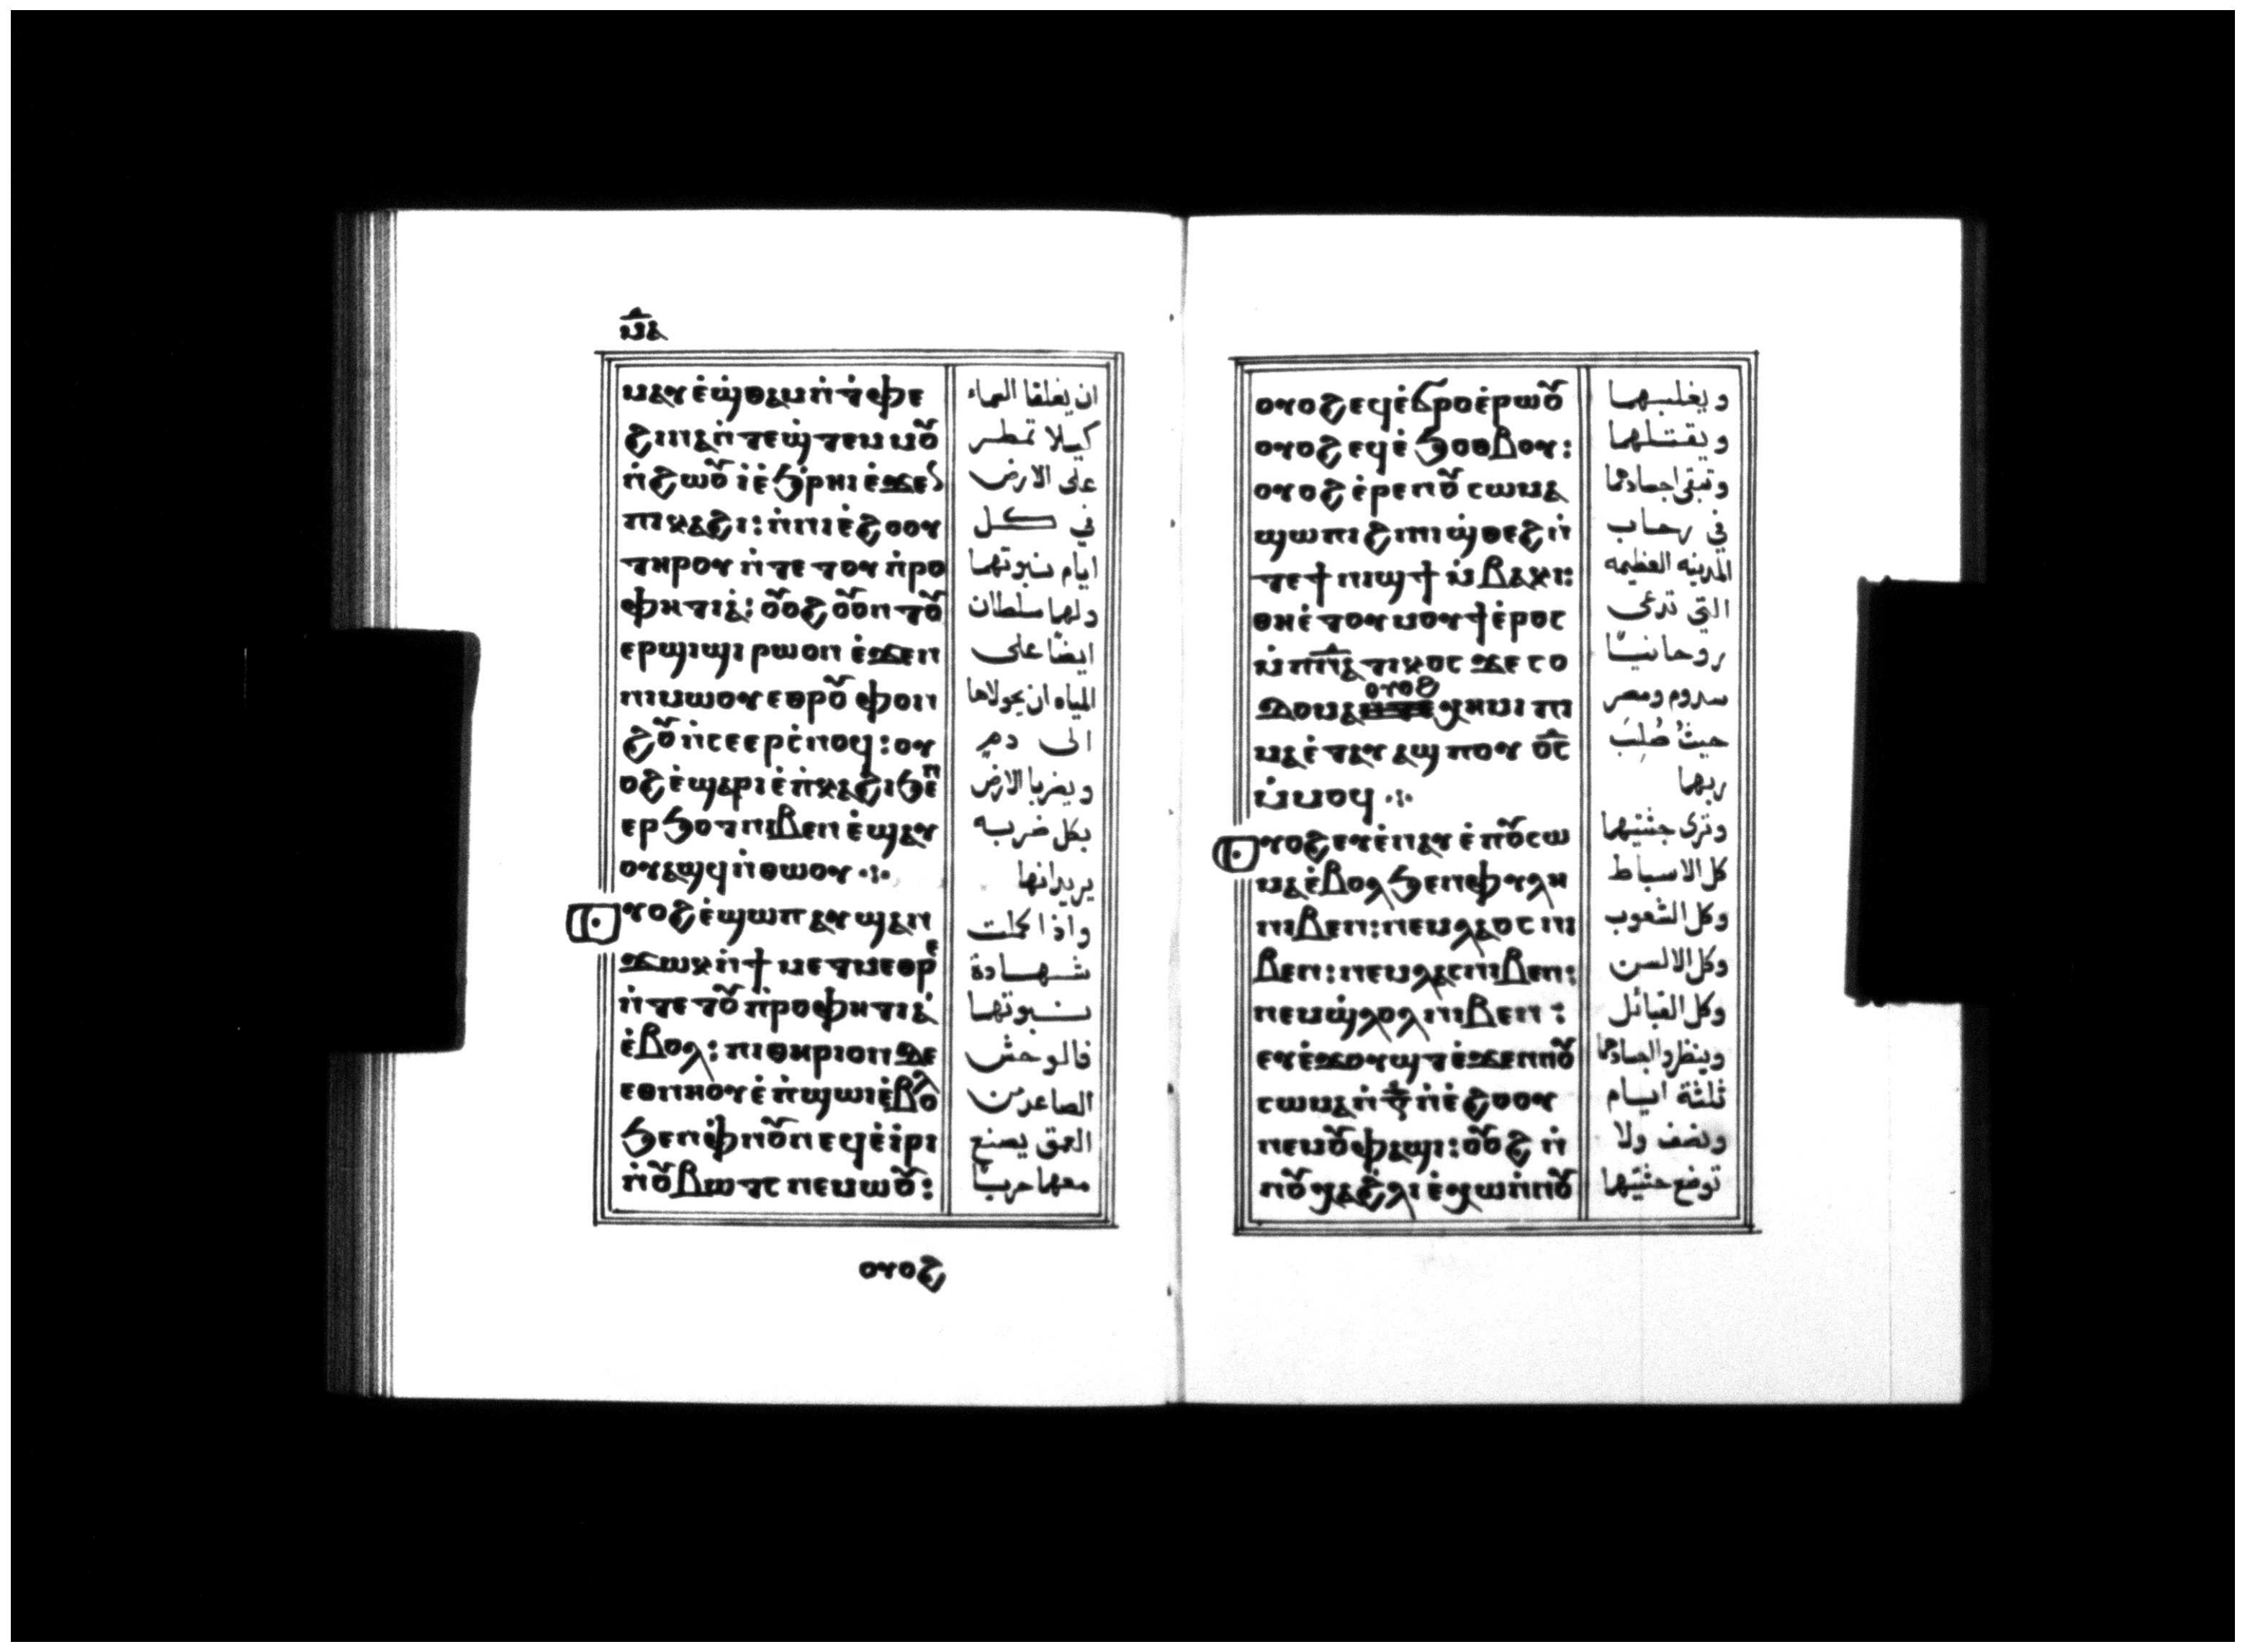 ⲛ̅ⲁ̅
ⲙⲁⲩⲉ̀ϣⲑⲁⲙⲛ̀ⲧ̀ⲫⲉ
ϩⲓⲛⲁⲛ̀ⲧⲉϣ̀ⲧⲉⲙⲙⲟⲩ
ⲛ̀ϩⲱⲟⲩⲓ̀ⲉ̀ϧⲣⲏⲓⲉ̀ϫⲉⲛ
ⲡⲓⲕⲁϩⲓ: ⲛ̀ⲛⲓⲉ̀ϩⲟⲟⲩ
ⲧⲏⲣⲟⲩ ⲛ̀ⲧⲉ ⲧⲟⲩ ⲡ̀ⲣⲟ
ⲫⲏⲧⲓⲁ̀: ⲟⲩⲟϩ ⲟⲩⲟⲛⲧⲟⲩ
ⲉⲣϣⲓϣⲓ ⲣⲱⲟⲛ ⲉ̀ϫⲉⲛ
ⲛⲓⲙⲱⲟⲩⲉⲑⲣⲟⲩ ⲫⲟⲛ
ϩⲟⲩⲛ̀ⲥⲉⲉⲣⲥ̀ⲛⲟϥ: ⲟⲩ
ⲟϩⲉ̀ϣⲁⲣⲓⲉ̀ⲡ̀ⲕⲁϩⲓϧⲉⲛ
ⲉⲣϧⲟⲧⲛⲓⲃⲉⲛ ⲉ̀ϣⲁⲩ
ⲟⲩⲁϣϥⲛ̀ⲑⲱⲟⲩ
ⲟⲩⲟϩⲉ̀ϣⲱⲡ ⲁⲩϣⲁⲛ
ϫⲱⲕⲛ̀ϯⲙⲉⲧⲙⲉⲑⲣⲉ
ⲛ̀ⲧⲉ ⲧⲟⲩ ⲡ̀ⲣⲟⲫⲏⲧⲓⲁ̀
ⲉ̀ⲃⲟⲗ: ⲡⲓⲑⲏⲣⲓⲟⲛ ⲇⲉ
ⲉⲑⲛⲏⲟⲩⲉ̀ⲡ̀ϣⲱⲓⲉ̀ⲃⲟⲗ
ϧⲉⲛⲫ̀ⲛⲟⲩⲛ ⲉϥⲉ̀ⲓⲣⲓ
ⲛ̀ⲟⲩⲃⲱⲧⲥ ⲛⲉⲙⲱⲟⲩ:
ⲟⲩⲟϩ
ان يغلقا السماء
كيلا تمطر
على الارض
في كل
ايام نبوتهما
ولهما سلطان
ايضًا على
المياه ان يحولاها
الى دمٍ
ويضربا الارض
بكل ضربه
يريدانها
واذا كملت
شهادة
نبوتهما
فالوحش
الصاعد من
العمق يصنع
معهما حربًا
ⲟⲩⲟϩ ⲉϥⲉ̀ϭⲣⲟⲉ̀ⲣⲱⲟⲩ
ⲟⲩⲟϩ ⲉϥⲉ̀ϧⲟⲑⲃⲟⲩ:
ⲟⲩⲟϩ ⲉ̀ⲣⲉⲛⲟⲩⲥⲱⲙⲁ
ϣⲱⲡⲓ ϩⲓⲡⲓϣ̀ⲑⲉϩ ⲛ̀
ⲧⲉ ϯⲛⲓϣϯ ⲙ̀ⲃⲁⲕⲓ:
ⲑⲏⲉ̀ⲧⲟⲩⲙⲟⲩϯⲉ̀ⲣⲟⲥ
ⲙ̀ⲡ̅ⲛ̅ⲁ̅ⲧⲓⲕⲟⲥ ϫⲉ ⲥⲟ
ⲇⲟⲙⲁ ⲟⲩⲟϩ ⲭⲏⲙⲓ ⲡⲓ
ⲙⲁⲉ̀ⲧⲁⲩ ⲁϣ ⲡⲟⲩ ⲟ̅ⲥ̅
ⲙ̀ⲙⲟϥ
ⲟⲩⲟϩ ⲉⲩⲉ̀ⲛⲁⲩ ⲉ̀ⲛⲟⲩⲥⲱ
ⲙⲁⲉ̀ⲃⲟⲗ ϧⲉⲛⲫⲩⲗⲏ
ⲛⲓⲃⲉⲛ: ⲛⲉⲙⲗⲁⲟⲥ ⲛⲓ
ⲃⲉⲛ: ⲛⲉⲙⲗⲁⲥⲛⲓⲃⲉⲛ:
ⲛⲉⲙϣ̀ⲗⲟⲗ ⲛⲓⲃⲉⲛ:
ⲉⲩⲉ̀ϫⲟⲩϣⲧⲉ̀ϫⲉⲛⲛⲟⲩ
ⲥⲱⲙⲁⲛ̀ⲅ̅ⲛ̀ⲉ̀ϩⲟⲟⲩ
ⲛⲉⲙⲟⲩⲫⲁϣⲓ: ⲟⲩⲟϩ ⲛ̀
ⲛⲟⲩⲭⲁϩ̀ⲗⲓ ⲉ̀ⲭⲱⲛ̀ⲛⲟⲩ
ويغلبهما
ويقتلهما
وتبقى اجسادهما
في رحاب
المدينه العظيمه
التي تدعى
روحانيًا
سدوم ومصر
حيثُ صُلِبَ
ربهما
وترى جثتيهما
كل الاسباط
وكل الشعوب
وكل الالسن
وكل القبائل
وينظروا اجسادهما
ثلثة ايام
ونصف ولا
توضع جثتيهما